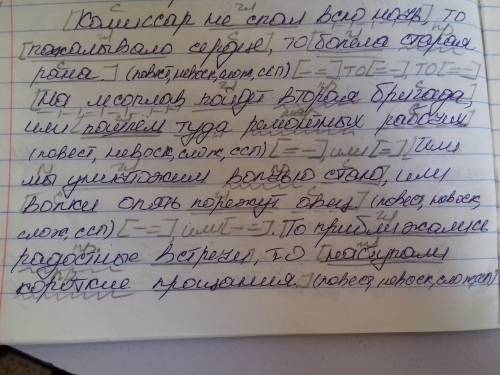 [Комиссар не спал всю ночь], то
[покалывало сердце], то [болела старая
рана.] (повест, невоск, слож, ссп) [— =] то [= —], то [= —]
[На лесоплав пойдет вторая бригада],
или [пошлем туда ремонтных рабочих]
(повест, невоск, слож, ссп) [= —], или [=] [Или
мы уничтожим волчью стаю], или
[волки опять порежут овец] (повест, невоск,
слож, ссп) [— =] или [— =]. [То приближались
радостные встречи], то [наступали
короткие прощания.] (повест, невоск, слож, ссп)